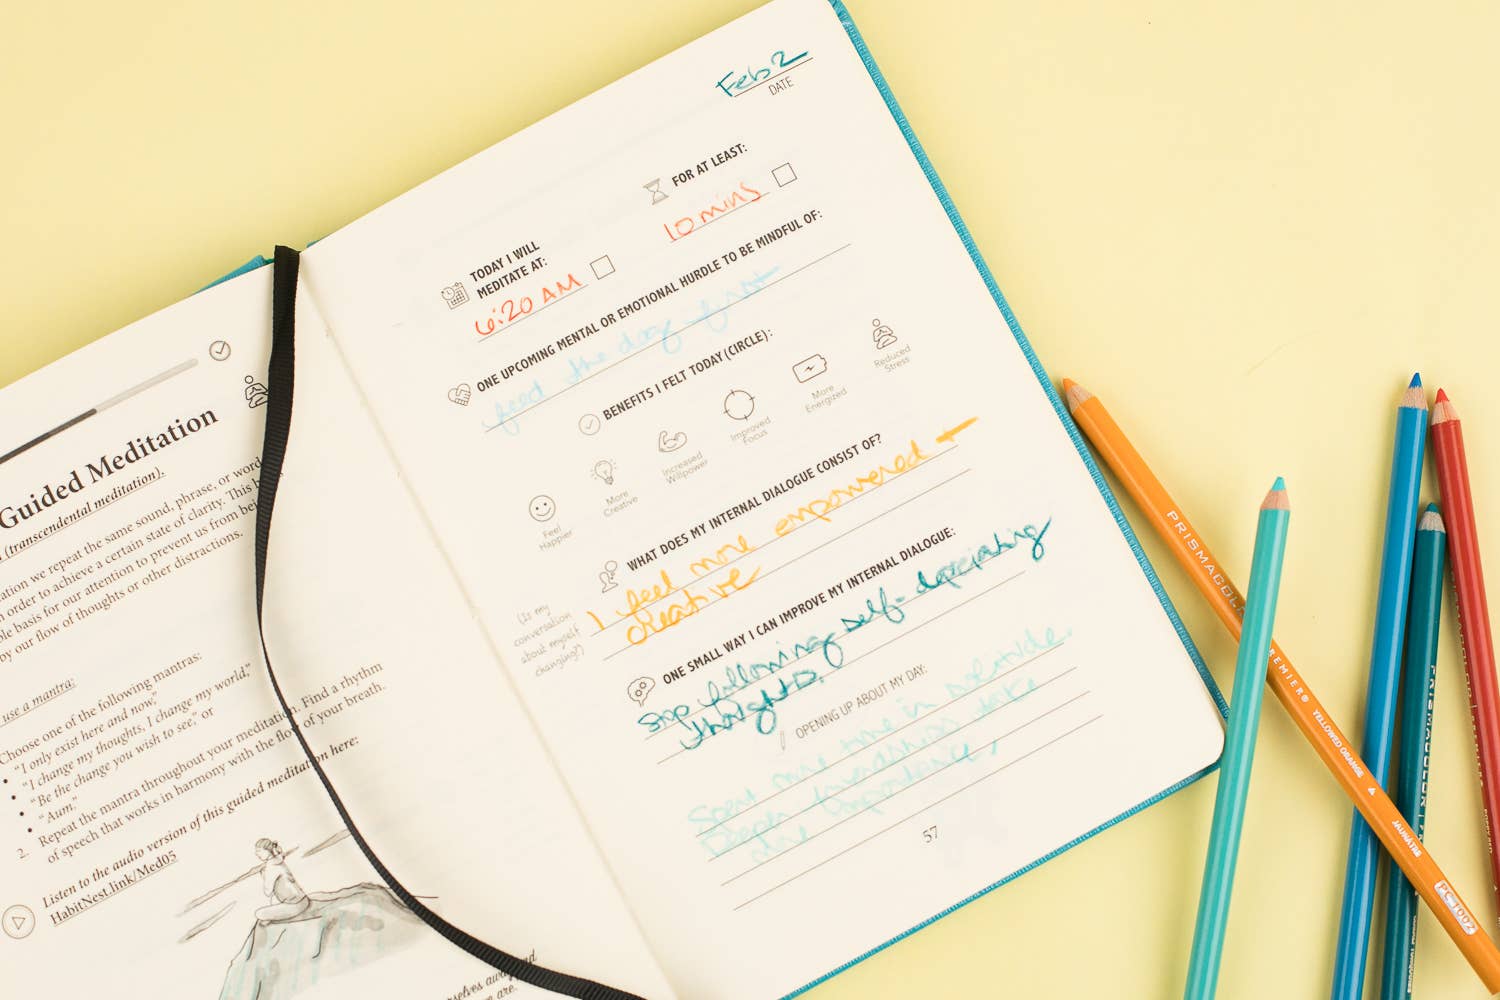 Guided Meditation
(transcendental meditation).
ation we repeat the same sound, phrase, or word
n order to achieve a certain state of clarity. This
ble basis for our attention to prevent us from
by our flow of thoughts or other distractions.
use a mantra:
Choose one of the following mantras:
• "I only exist here and now,"
• "I change my thoughts, I change my world,"
• "Be the change you wish to see," or
• "Aum."
2. Repeat the mantra throughout your meditation. Find a rhythm
of speech that works in harmony with the flow of your breath.
Listen to the audio version of this guided meditation here:
HabitNest.link/Med05
Feb 2
DATE
TODAY I WILL
MEDITATE AT:
6:20 AM
FOR AT LEAST:
10 mins
ONE UPCOMING MENTAL OR EMOTIONAL HURDLE TO BE MINDFUL OF:
feed the dog first
BENEFITS I FELT TODAY (CIRCLE):
Feel
Happier
More
Creative
Increased
Willpower
Improved
Focus
More
Energized
Reduced
Stress
WHAT DOES MY INTERNAL DIALOGUE CONSIST OF?
(Is my
conversation
about myself
changing?)
I feel more empowered +
creative
ONE SMALL WAY I CAN IMPROVE MY INTERNAL DIALOGUE:
stop following self-depreciating
thoughts.
OPENING UP ABOUT MY DAY:
Spent more time in solitude.
57
PRISMACOLO
PREMIER®
YELLOWED ORANGE
PC 1002